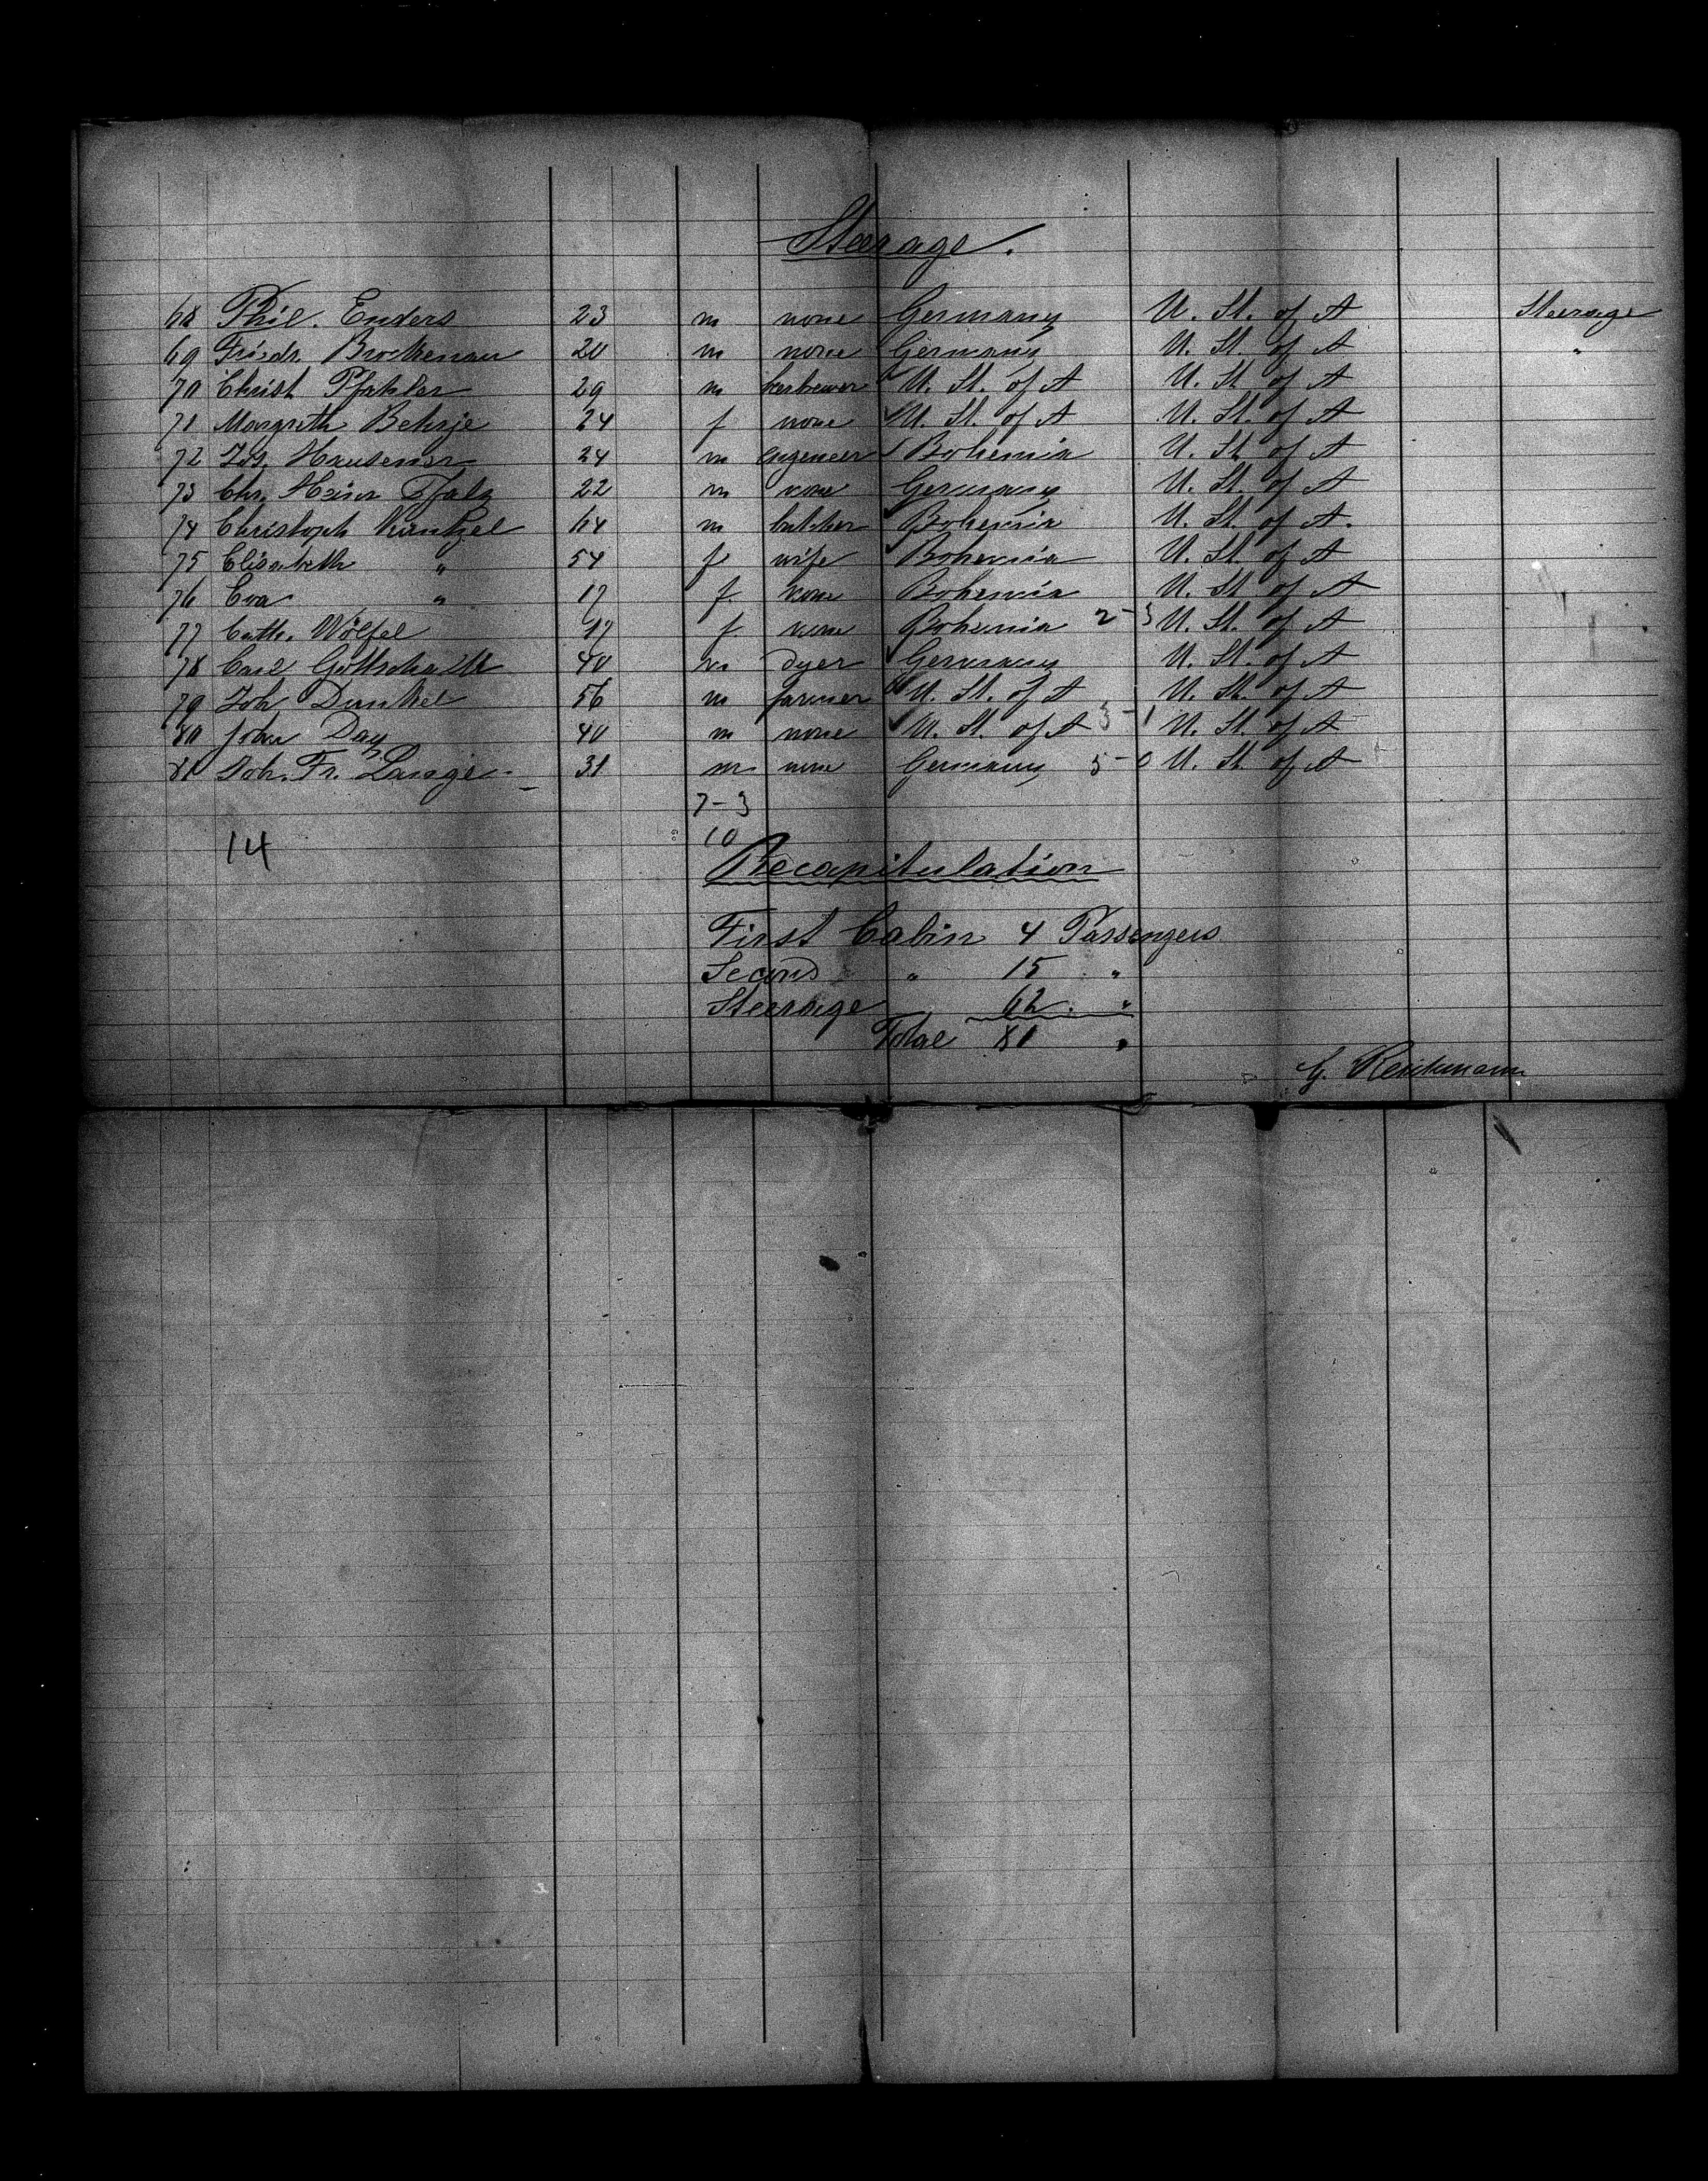 Steerage.
68 Phil. Enders 23 m none Germany U. St. of A Steerage
69 Friedr. Brockenau 20 m none Germany U. St. of A "
70 Christ Pfahler 29 m U. St. of A U. St. of A
71 Margreth Behrje 24 f none U. St. of A U. St. of A
72 Jos. Hausener 24 m engeneer Bohemia U. St. of A
73 Chr. Heinr Pfalz 22 m none Germany U. St. of A
74 Christoph Küntzel 64 m butcher Bohemia U. St. of A.
75 Elisabeth " 54 f wife Bohemia U. St. of A
76 Eva " 17 f none Bohemia U. St. of A
77 Cath. Wölfel 17 f none Bohemia 2-3 U. St. of A
78 Carl Gottschaldt 40 m dyer Germany U. St. of A
79 Joh Dunkel 56 m farmer U. St. of A U. St. of A
80 John Day 40 m none U. St. of A 3-1 U. St. of A
81 Joh. Fr. Lange 31 m none Germany 5-0 U. St. of A
7-3
14 10
Recapitulation
First Cabin 4 Passengers
Second " 15 "
Steerage 62 "
Total 81 "